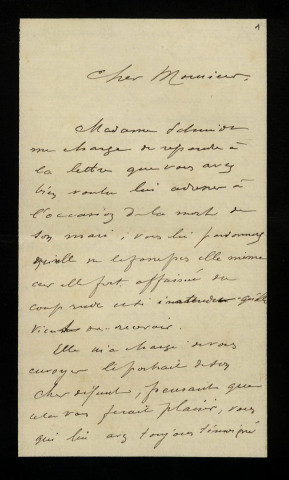 1
Cher Monsieur,
Madame Schmidt
me charge de repondre à
la lettre que vous avez
bien voulu lui adresser à
l'occasion de la mort de
son mari ; vous lui pardonnerez
qu'elle ne reponse elle même
car elle fort affaissée du
coup rude et si inattendu qu'elle
vient de recevoir.
Elle m'a chargé de vous
envoyer le portrait de son
cher défunt, pensant que
cela vous ferait plaisir, vous
qui lui avez toujours témoigné